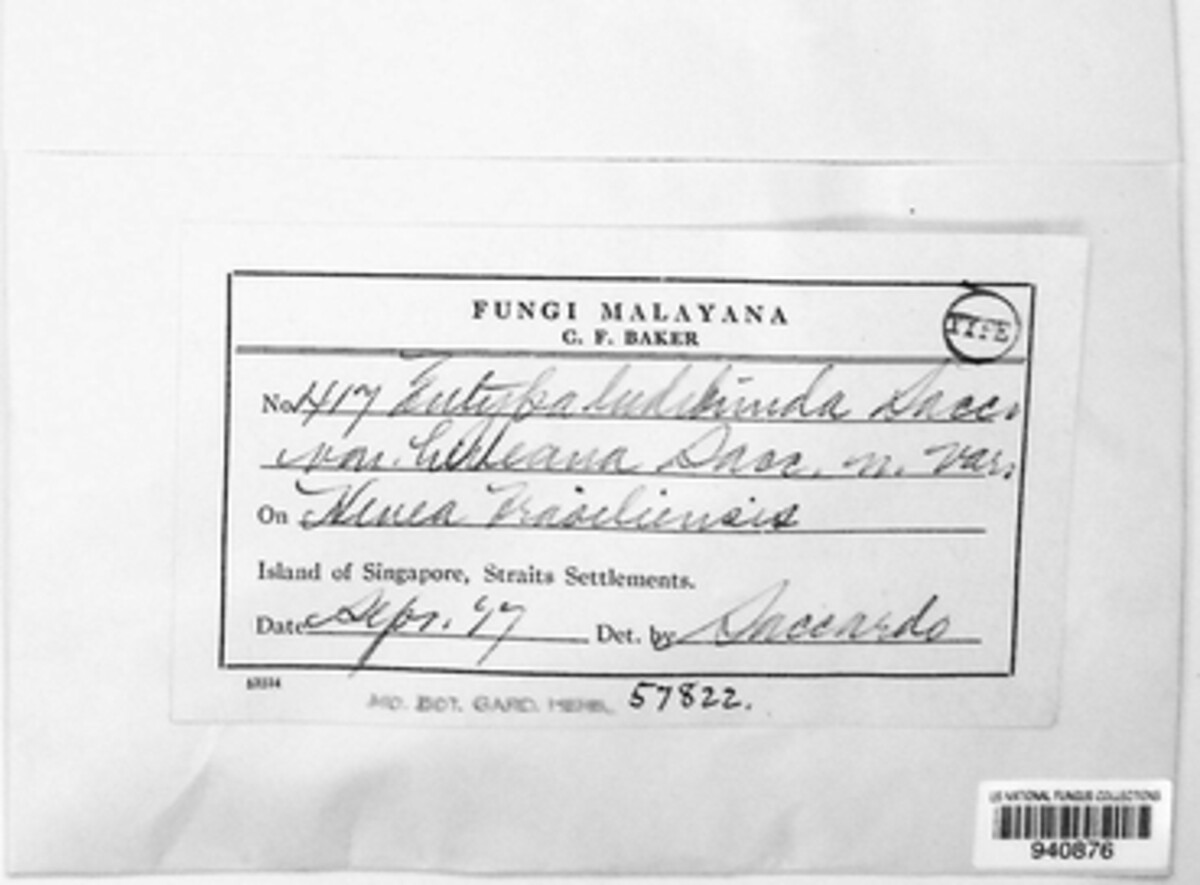 FUNGI MALAYANA
C. F. BAKER
TYPE
No. 417 Eutypa ludibunda Sacc.
var. Sacc. n. var.
On Hevea Brasiliensis
Island of Singapore, Straits Settlements.
Date Sept. '17 Det. by Saccardo
MO. BOT. GARD. HERB. 57822.
US NATIONAL FUNGUS COLLECTIONS
940876